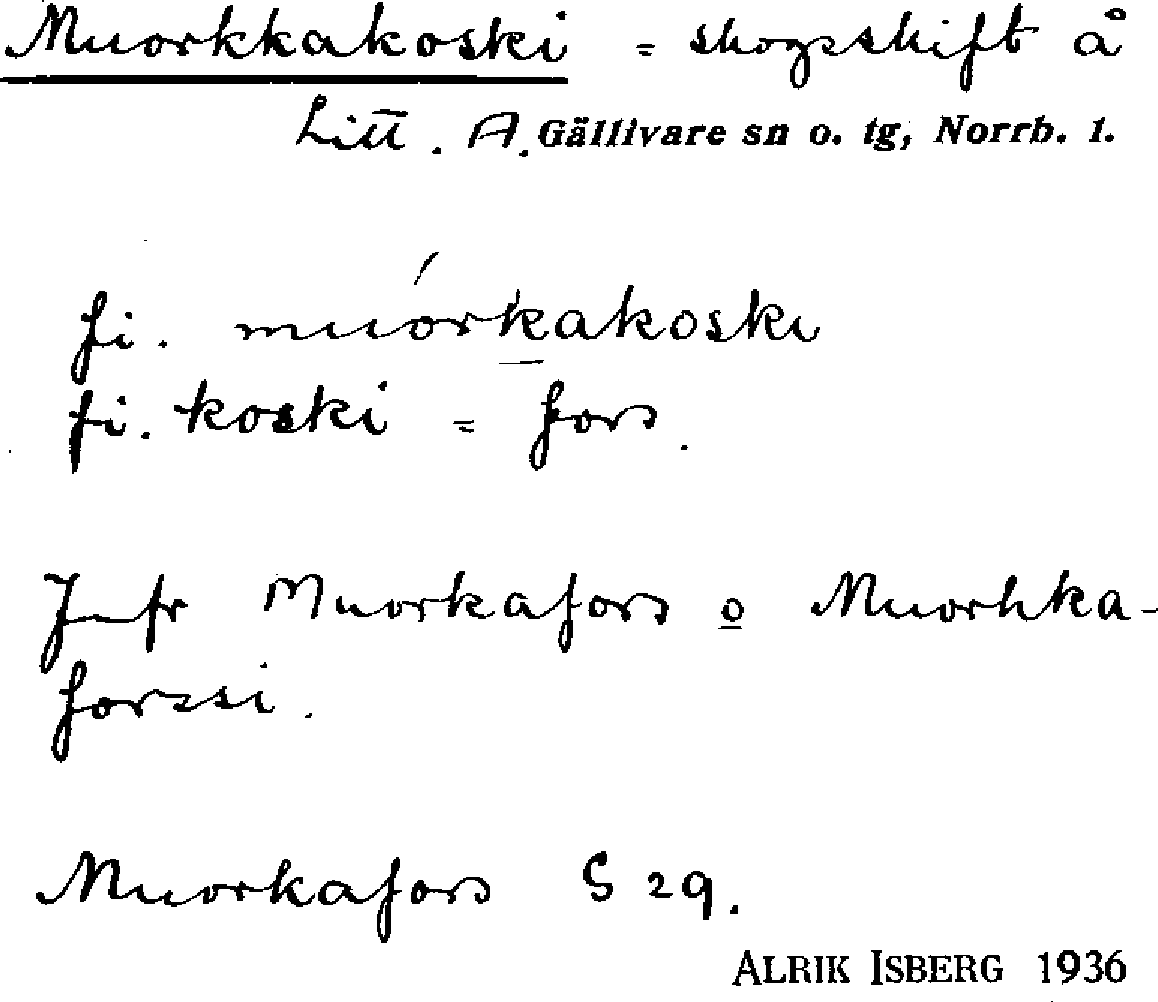 Muorkkakoski = skogsskift å
Litt. A. Gällivare sn o. tg, Norrb. l.
fi. muórkakoski
fi. koski = fors.
Jmfr Muorkafors o Muorkka-
forssi.
Muorkafors S 29.
ALRIK ISBERG 1936